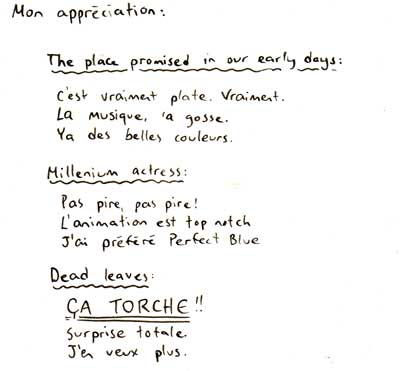 Mon appréciation:
The place promised in our early days:
C'est vraiment plate. Vraiment.
La musique, 'a gosse.
Ya des belles couleurs.
Millenium actress:
Pas pire, pas pire!
L'animation est top notch
J'ai préféré Perfect Blue
Dead leaves:
ÇA TORCHE!!
Surprise totale.
J'en veux plus.